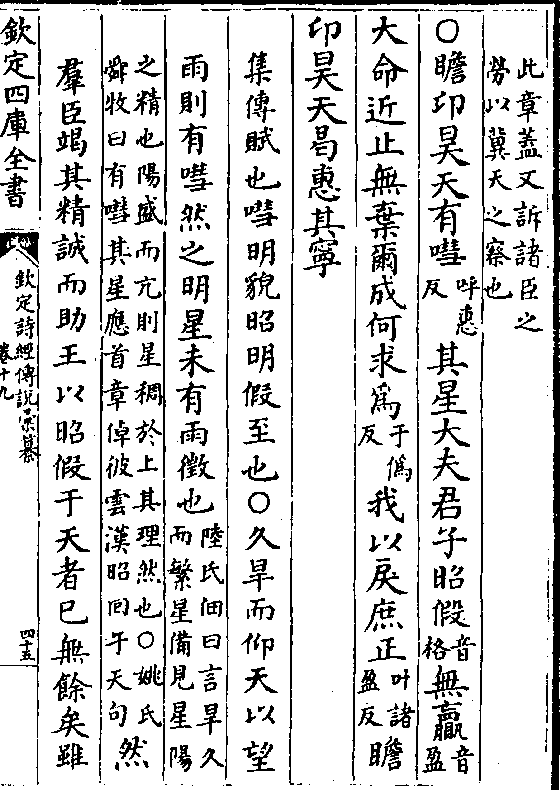 此章蓋又訴諸臣之
勞以冀天之察也
○瞻卬昊天有嘒呼惠反其星大夫君子昭假音格無贏音盈
大命近止無棄爾成何求爲于僞反我以戾庶正叶諸盈反瞻
卬昊天曷惠其寧
集傳賦也嘒明貌昭明假至也○久旱而仰天以望
雨則有嘒然之明星未有雨徵也陸氏佃曰言旱久而繁星備見星陽
之精也陽盛而亢則星稠於上其理然也○姚氏舜牧曰有嘒其星應首章倬彼雲漢昭回于天句然
羣臣竭其精誠而助王以昭假于天者已無餘矣雖
欽定四庫全書
欽定詩經傳說彙纂
卷十九
四十五